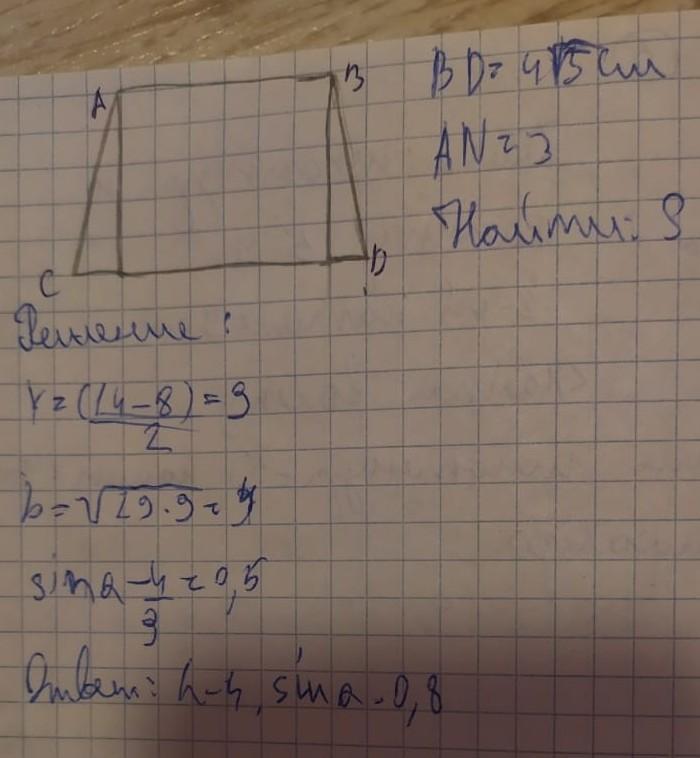 A
B
C
D
BD = 4√5 см
AN = 3
Найти: S
Решение:
r = (14-8)/2 = 3
h = √29·9 = 4
sin α - 4/3 = 0,5
Ответ: h-4, sin α - 0,8